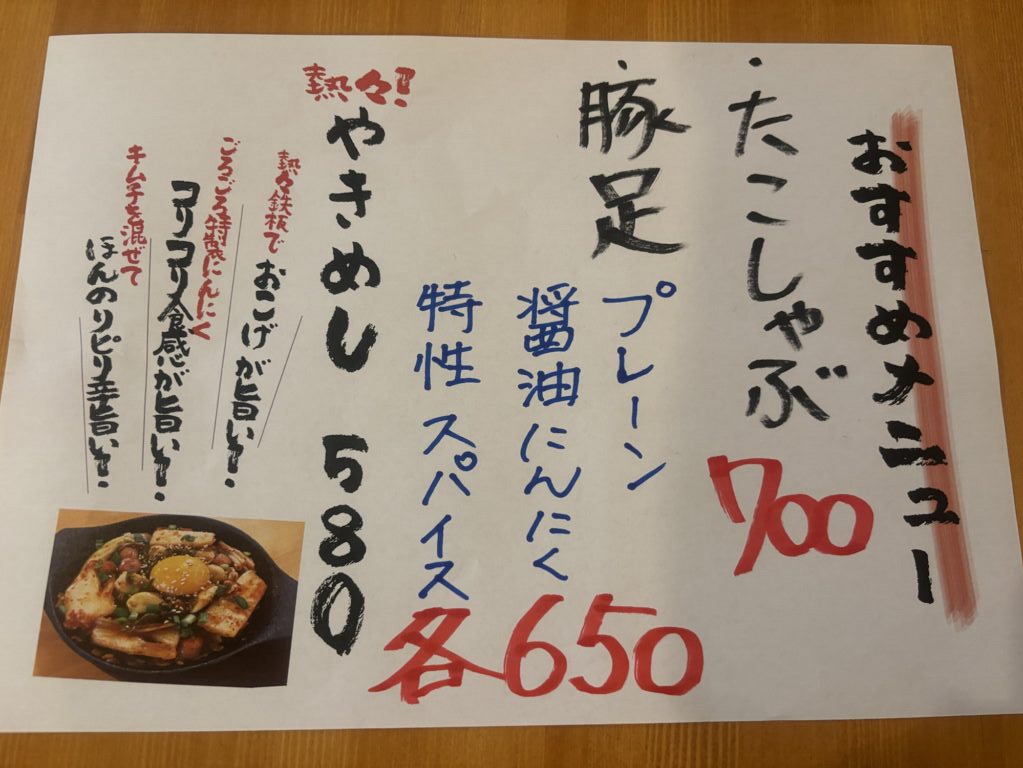 おすすめメニュー
・たこしゃぶ
700
・豚足
プレーン
醤油にんにく
特性スパイス
各650
熱々!
やきめし 580
熱々鉄板で
おこげが旨い!
ごろごろ特製にんにく
コリコリ食感が旨い!
キムチを混ぜて
ほんのりピリ辛旨い!